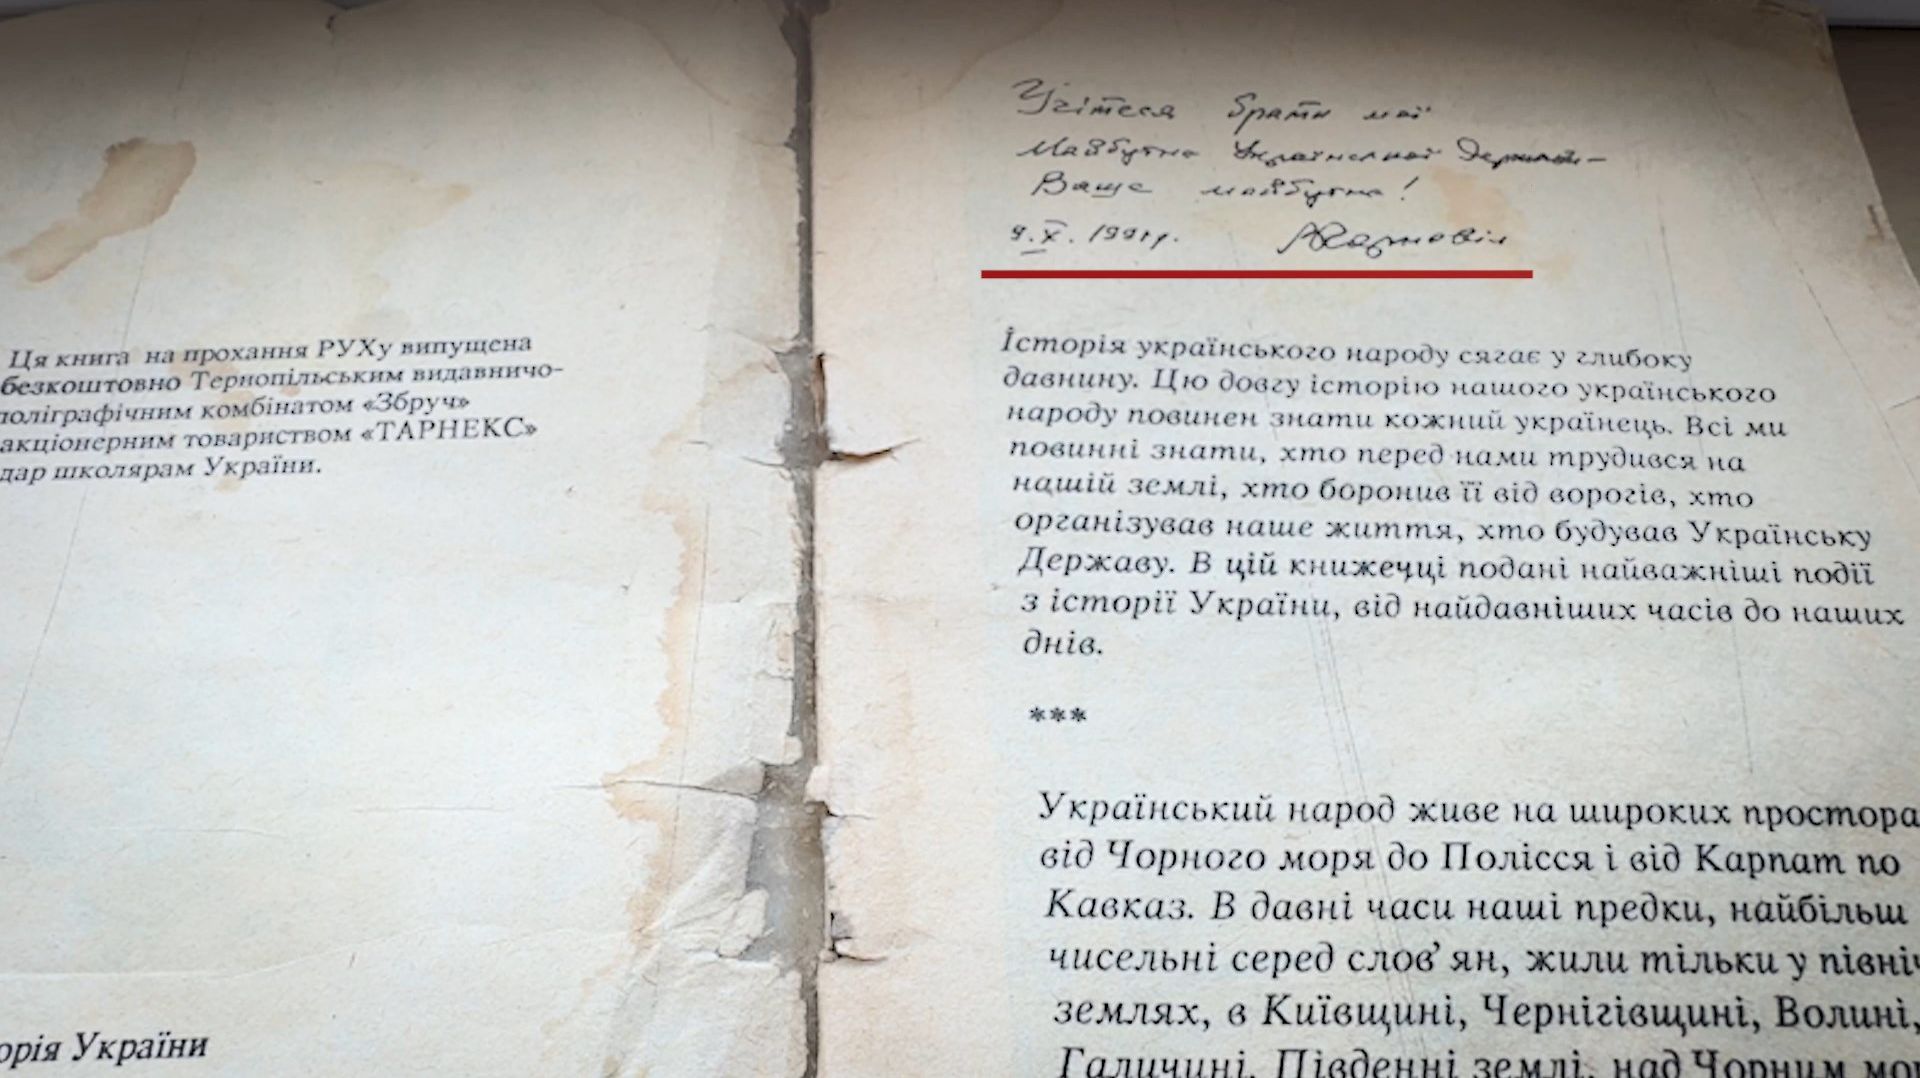 Ця книга на прохання РУХу випущена
безкоштовно Тернопільським видавничо-
поліграфічним комбінатом «Збруч»
акціонерним товариством «ТАРНЕКС»
дар школярам України.
орія України
Учітеся брати мої
Майбутнє Української Держави –
Ваше майбутнє!
9.X.1991р. Чорновіл
Історія українського народу сягає у глибоку
давнину. Цю довгу історію нашого українського
народу повинен знати кожний українець. Всі ми
повинні знати, хто перед нами трудився на
нашій землі, хто боронив її від ворогів, хто
організував наше життя, хто будував Українську
Державу. В цій книжечці подані найважніші події
з історії України, від найдавніших часів до наших
днів.
***
Український народ живе на широких простора
від Чорного моря до Полісся і від Карпат по
Кавказ. В давні часи наші предки, найбільш
чисельні серед слов’ян, жили тільки у північ
землях, в Київщині, Чернігівщині, Волині,
Галичині. Південні землі, над Чорним мор